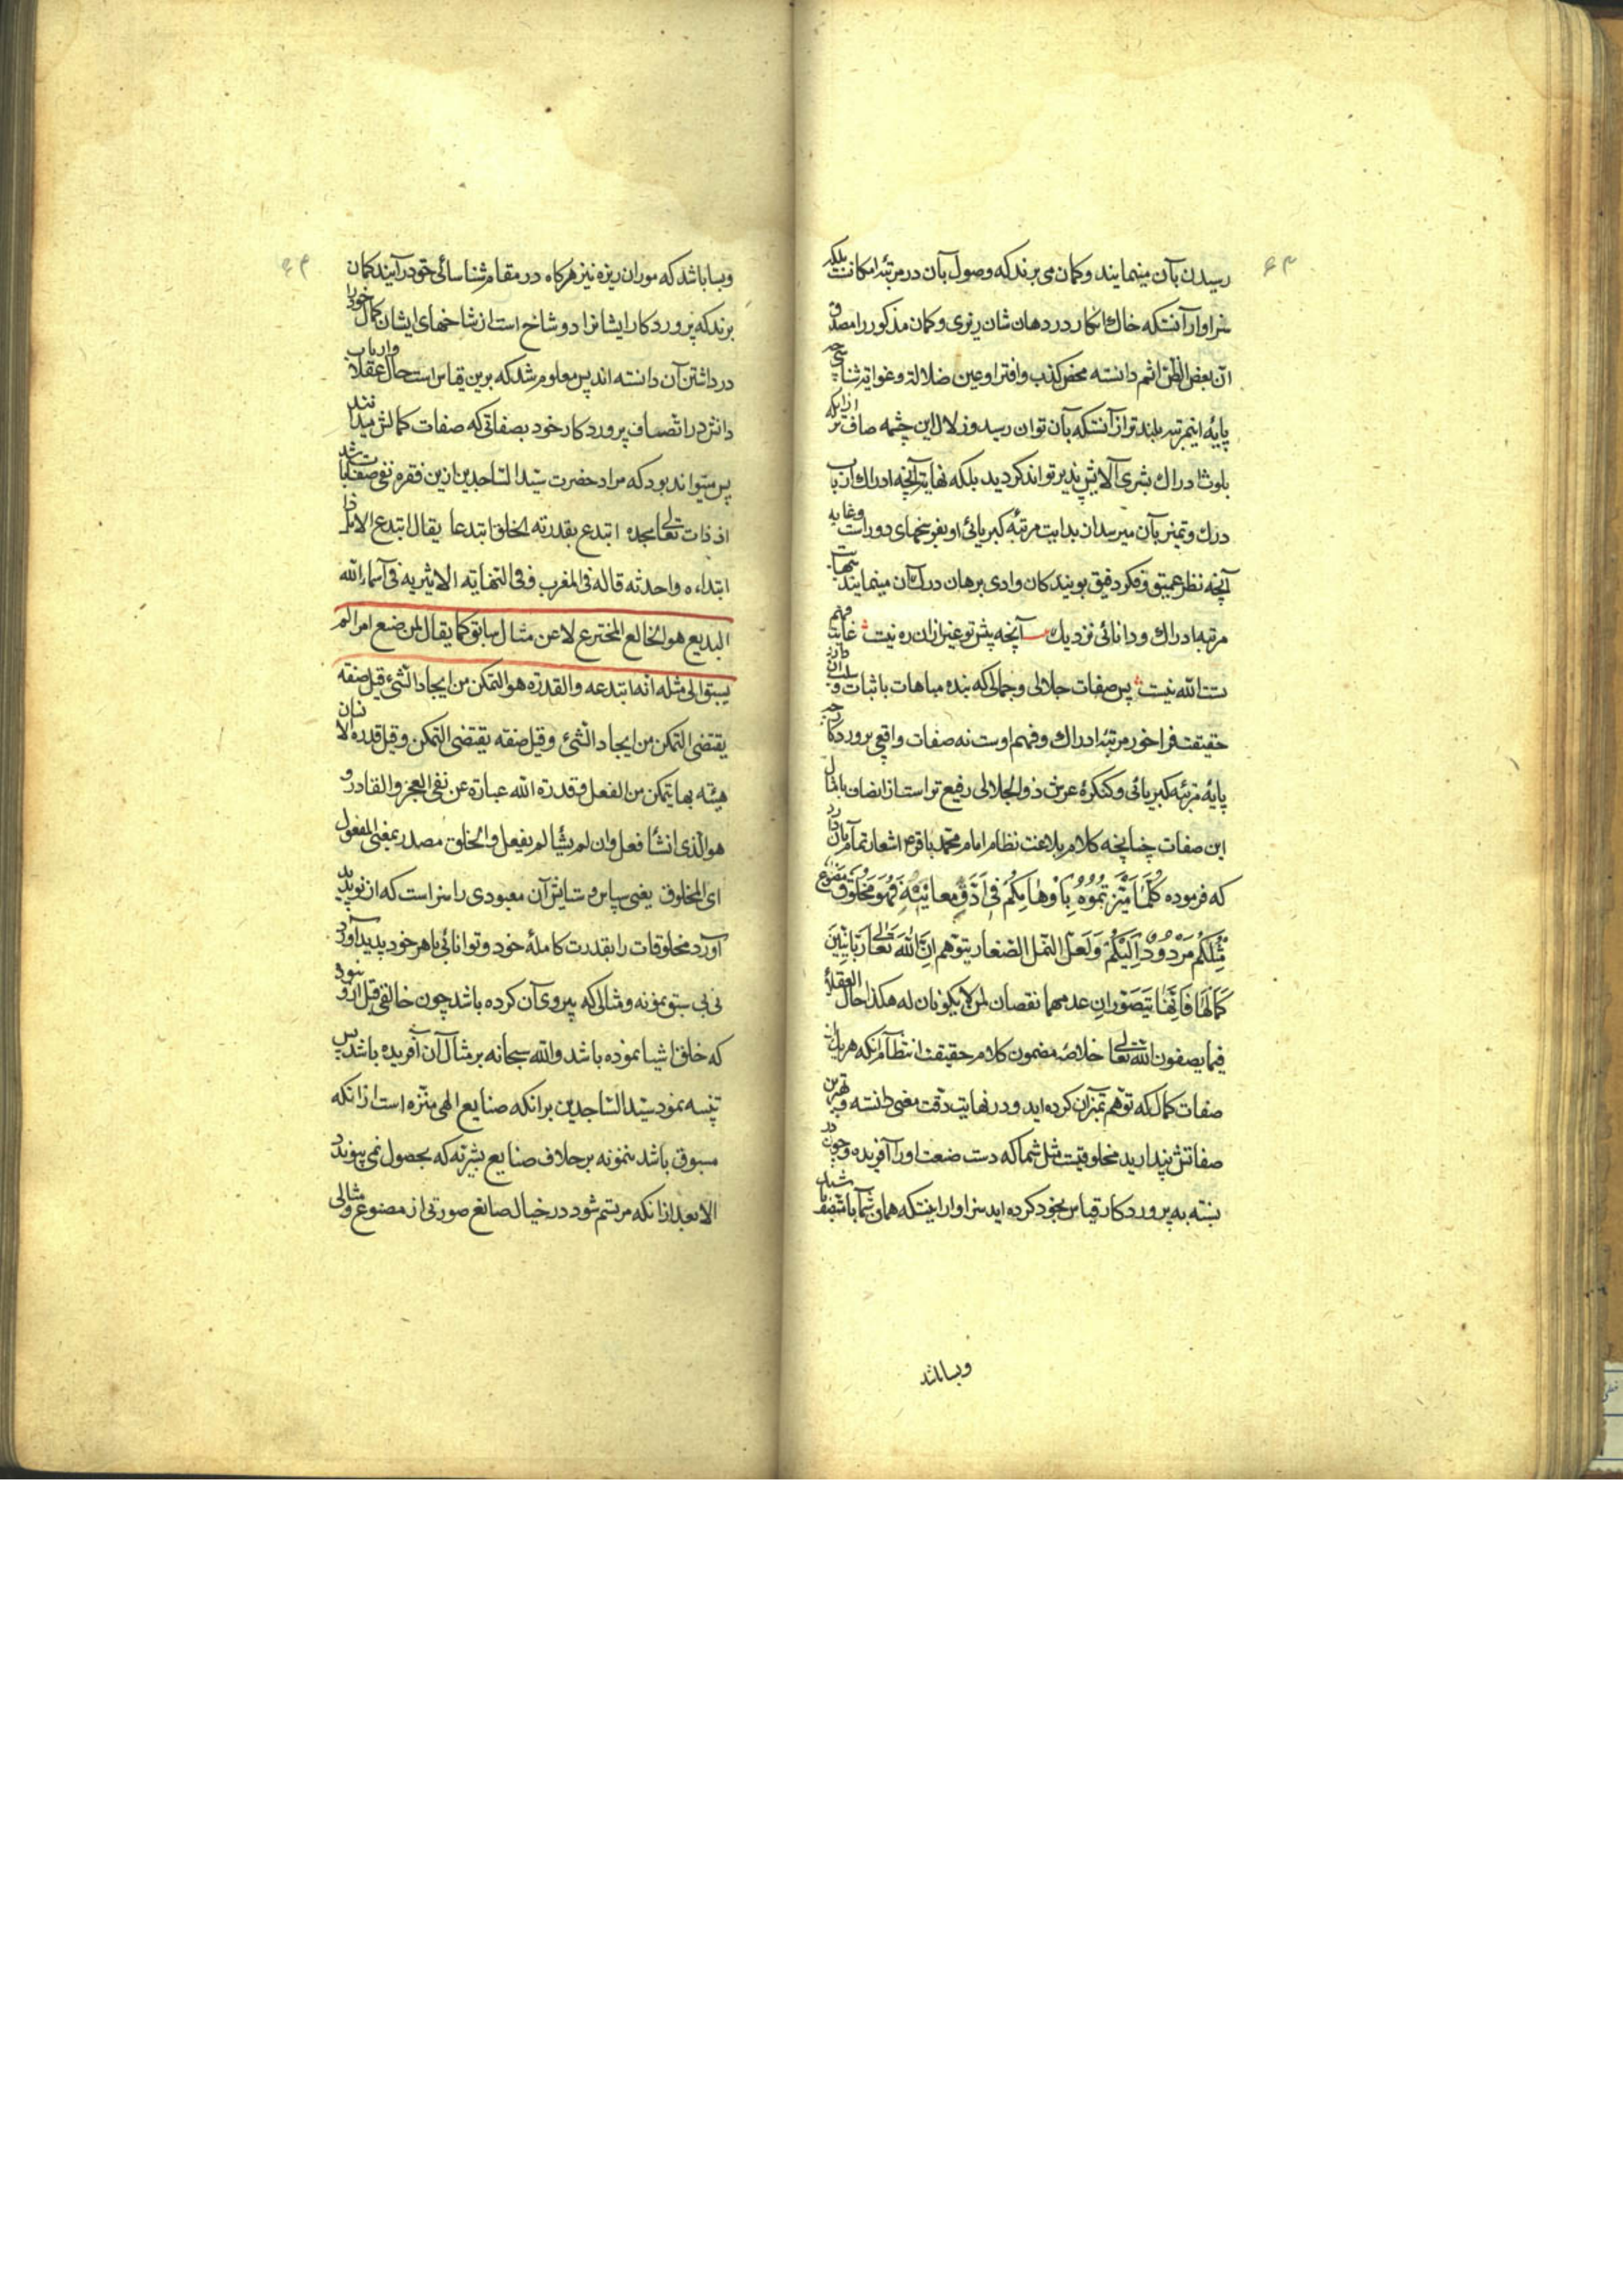 ۶۳
رسیدن بآن مینمایند و کمان می برند که وصول بآن در مرتبه امکانست بلکه
سزاوار آنستکه خاك انکار در دهان شان ریزی و کمان مذکور را مصدق
ان بعض الظن اثم دانسته محض کذب و افترا و عین ضلالة و غوایة شناسی چه
پایهٔ اینمرتبه بلندتر از آنستکه بآن توان رسید و زلال این چشمه صافتر از انکه
بلوث ادراك بشری آلایش پذیر تواند کردید بلکه نهایت آنچه ادراك ارباب
درك و تمیز بآن میرسد از بدایت مرتبه کبریائی او بفرسخهای دور است و غایه
آنچه نظر عمیق و فکر دقیق پویندکان وادی برهان درك آن مینمایند بنهایت
مرتبه ادراك و دانائی نزدیك آنچه پیش تو غیر از آن ره نیست غایت فهم
تست الله نیست پس صفات جلالی و جمالی که بنده مباهات باثبات و سلب ان دارد
حقیقت فراخور مرتبه ادراك و فهم اوست نه صفات واقعی پروردکار چه
پایهٔ مرتبه کبریائی و کنکرهٔ عرش ذو الجلالی رفیع تر است از اتصاف بامثال
این صفات چنانچه کلام بلاغت نظام امام محمد باقر ع اشعار تمام بآن دارد
که فرموده كُلَّمَا مَيَّزْتُمُوهُ بِأَوْهَامِكُمْ فِي أَدَقِّ مَعَانِيهِ فَهُوَ مَخْلُوقٌ مَصْنُوعٌ
مِثْلُكُمْ مَرْدُودٌ اِلَيْكُمْ وَلَعَلَّ النمل الصغار يتوهم اِنَّ اللهَ تعالی زبانيتين
كَمَالَهَا فَاِنَّهَا يَتَصَوَّرُ ان عدمهما نقصان لمن لا يكونان له هكذا حال العقلاء
فيما يصفون الله تعالی خلاصهٔ مضمون کلام حقیقت انتظام آنکه هر یك از
صفات کمال که توهم تمیز آن کرده اید و در نهایت دقت معنی دانسته و بهترین
صفاتش پندارید مخلوقیست مثل شما که دست صنعت او را آفریده و چون در
بسته به پروردکار قیاس بخود کرده اید سزاوار اینستکه همان شما باشید
وبسا باشد
۶۴
وبسا باشد که موران ریزه نیز هرکاه در مقام شناسائی حق درآیند کمان
برند که پروردکار ایشانرا دو شاخ است از شاخهای ایشان کمال خود را
در داشتن آن دانسته اند پس معلوم شد که برین قیاس است حال عقلا و ارباب
دانش در اتصاف پروردکار خود بصفاتی که صفات کمالش میدانند
پس میتواند بود که مراد حضرت سید الساجدین ازین فقره نفی صفات باشد
از ذات تعالی مجده ابتدع بقدرته الخلق ابتدعا یقال ابتدع الامر اذا
ابتداءه واحدثه قاله فی المغرب و فی النهایه الاثیریه فی اسماء الله
البدیع هو الخالع المخترع لا عن مثال سابق کما یقال لمن صنع امرا لم
یسبق الی مثله انه ابتدعه والقدرة هو التمکن من ایجاد الشیء قیل صفه
یقتضی التمکن من ایجاد الشیء وقیل صفه یقتضی التمکن وقیل قدرة الانسان
هیئه بها یتمکن من الفعل و قدرة الله عبارة عن نفی العجز والقادر
هو الذی انشأ فعل وان لم یشأ لم یفعل والخلق مصدر بمعنی المفعول
ای المخلوق یعنی سپاس و ستایش آن معبودی را سزاست که از نو پدید
آورد مخلوقات را بقدرت کاملهٔ خود و توانائی باهر خود پدید آوردنی
بی سبق نمونه و مثالی که پیروی آن کرده باشد چون خالقی قبل از او نبود
که خلق اشیا نموده باشد والله سبحانه بر مثال آن آفریده باشد پس
تنبیه نمود سید الساجدین بر انکه صنایع الهی منزه است از انکه
مسبوق باشد بنمونه برخلاف صنایع بشریه که بحصول نمی پیوندد
الا بعد از انکه مرتسم شود در خیال صانع صورتی از مصنوع و مثالی